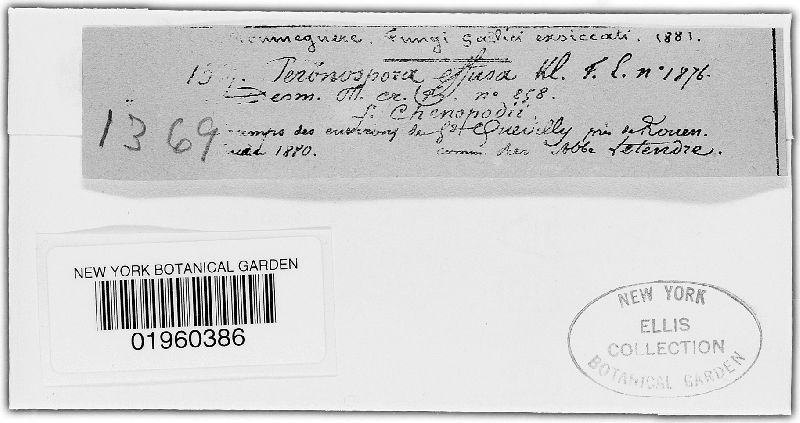 Roumeguere. Fungi Gallici exsiccati. 1881.
Peronospora effusa Kl. F. E. nº 1876.
Desm. Pl. cr. nº 858.
f. Chenopodii
1369
champs des environs de Gd Quevilly près de Rouen.
1880. comm. Rev. Abbé Letendre.
NEW YORK BOTANICAL GARDEN
01960386
NEW YORK
ELLIS
COLLECTION
BOTANICAL GARDEN